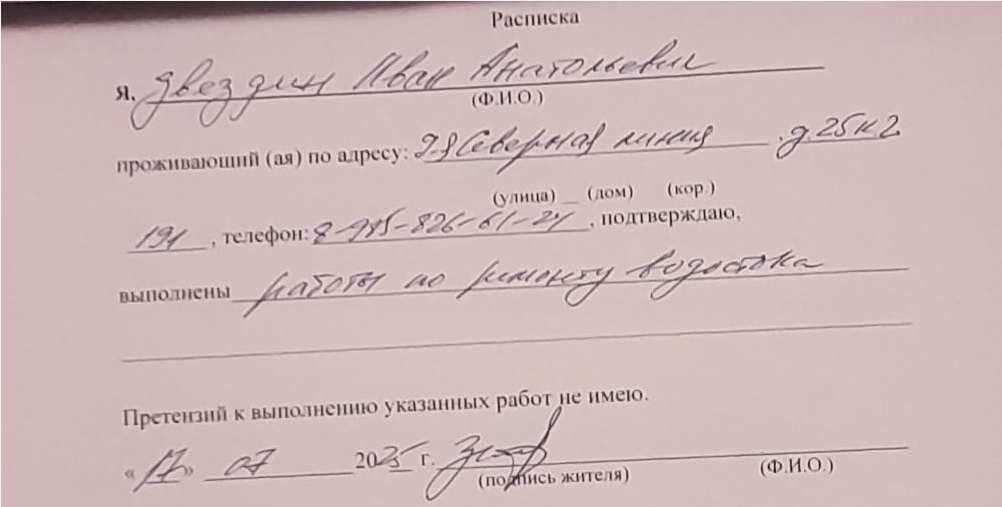 Расписка
Я, Звездин Иван Анатольевич
(Ф.И.О.)
проживающий (ая) по адресу: 9-я Северная линия . д. 25 к 2
(улица) _ (дом) (кор.)
191, телефон: 8-985-826-61-24, подтверждаю,
выполнены работы по ремонту водостока
Претензий к выполнению указанных работ не имею.
«17» 07 2025 г.
(подпись жителя) (Ф.И.О.)